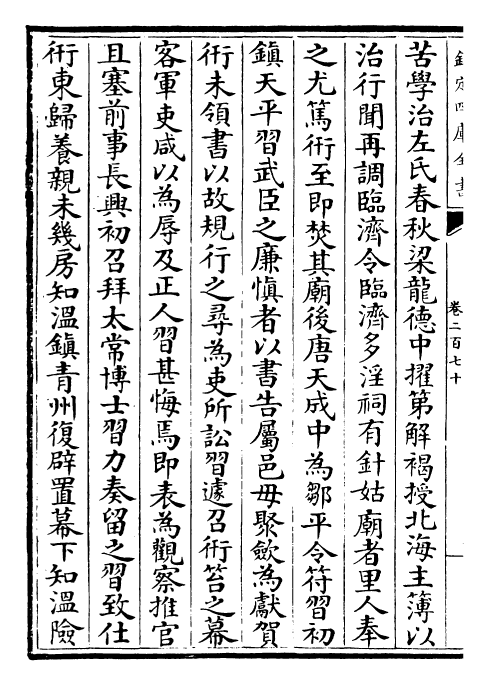 苦學治左氏春秋梁龍德中擢第解褐授北海主簿以
治行聞再調臨濟令臨濟多淫祠有針姑廟者里人奉
之尤篤術至即焚其廟後唐天成中為鄒平令符習初
鎮天平習武臣之廉慎者以書告屬邑毋聚斂為獻賀
術未領書以故規行之尋為吏所訟習遽召術笞之幕
客軍吏咸以為辱及正人習甚悔焉即表為觀察推官
且塞前事長興初召拜太常博士習力奏留之習致仕
術東歸養親未幾房知溫鎮青州復辟置幕下知溫險
欽定四庫全書
卷二百七十